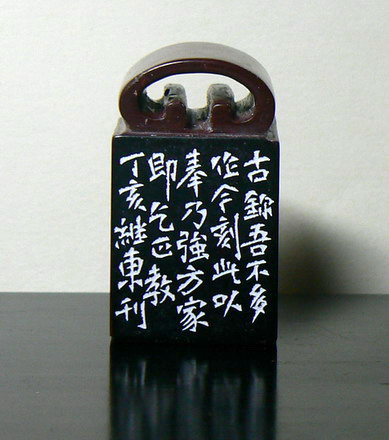 古鉩吾不多
作今刻此以
奉乃強方家
即乞正教
丁亥継東刊